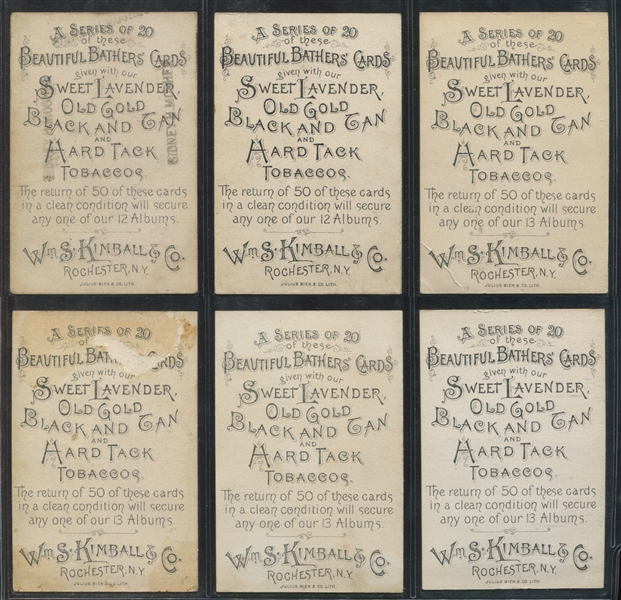 A SERIES OF 20
of these
BEAUTIFUL BATHERS' CARDS
given with our
SWEET LAVENDER,
OLD GOLD
BLACK AND TAN
AND
HARD TACK
TOBACCOS.
The return of 50 of these cards
in a clean condition will secure
any one of our 12 Albums.
WM S. KIMBALL & CO.
ROCHESTER, N.Y.
JULIUS BIEN & CO. LITH.
A SERIES OF 20
of these
BEAUTIFUL BATHERS' CARDS
given with our
SWEET LAVENDER,
OLD GOLD
BLACK AND TAN
AND
HARD TACK
TOBACCOS.
The return of 50 of these cards
in a clean condition will secure
any one of our 12 Albums.
WM S. KIMBALL & CO.
ROCHESTER, N.Y.
JULIUS BIEN & CO. LITH.
A SERIES OF 20
of these
BEAUTIFUL BATHERS' CARDS
given with our
SWEET LAVENDER,
OLD GOLD
BLACK AND TAN
AND
HARD TACK
TOBACCOS.
The return of 50 of these cards
in a clean condition will secure
any one of our 13 Albums.
WM S. KIMBALL & CO.
ROCHESTER, N.Y.
JULIUS BIEN & CO. LITH.
A SERIES OF 20
of these
BEAUTIFUL BATHERS' CARDS
given with our
SWEET LAVENDER,
OLD GOLD
BLACK AND TAN
AND
HARD TACK
TOBACCOS.
The return of 50 of these cards
in a clean condition will secure
any one of our 13 Albums.
WM S. KIMBALL & CO.
ROCHESTER, N.Y.
JULIUS BIEN & CO. LITH.
A SERIES OF 20
of these
BEAUTIFUL BATHERS' CARDS
given with our
SWEET LAVENDER,
OLD GOLD
BLACK AND TAN
AND
HARD TACK
TOBACCOS.
The return of 50 of these cards
in a clean condition will secure
any one of our 13 Albums.
WM S. KIMBALL & CO.
ROCHESTER, N.Y.
JULIUS BIEN & CO. LITH.
A SERIES OF 20
of these
BEAUTIFUL BATHERS' CARDS
given with our
SWEET LAVENDER,
OLD GOLD
BLACK AND TAN
AND
HARD TACK
TOBACCOS.
The return of 50 of these cards
in a clean condition will secure
any one of our 13 Albums.
WM S. KIMBALL & CO.
ROCHESTER, N.Y.
JULIUS BIEN & CO. LITH.